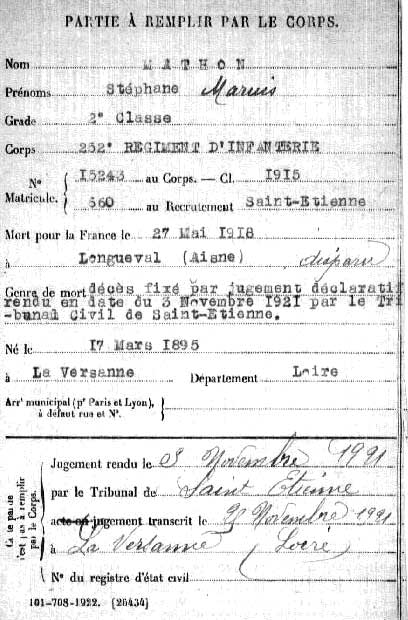 PARTIE À REMPLIR PAR LE CORPS.
Nom MATHON
Prénoms Stéphane Marius
Grade 2e Classe
Corps 252e REGIMENT D'INFANTERIE
No Matricule. { I5243 au Corps. — Cl. I9I5
560 au Recrutement Saint-Etienne
Mort pour la France le 27 Mai I9I8
à Longueval (Aisne) disparu
Genre de mort décès fixé par jugement déclaratif
rendu en date du 3 Novembre I92I par le Tri
-bunal Civil de Saint-Etienne.
Né le I7 Mars I895
à La Versanne Département Loire
Arrt municipal (pr Paris et Lyon), }
à défaut rue et No.
Jugement rendu le 3 Novembre 1921
par le Tribunal de Saint Etienne
acte ou jugement transcrit le Novembre 1921
à La Versanne (Loire)
No du registre d'état civil
Cette partie
n'est pas à remplir
par le Corps.
101-708-1922. [26434]